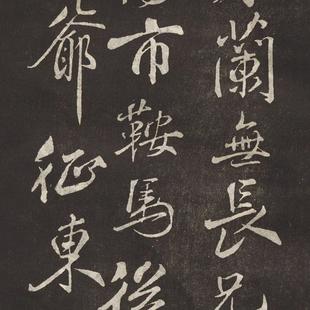 蘭無長兄
為市鞍馬從
爺征東